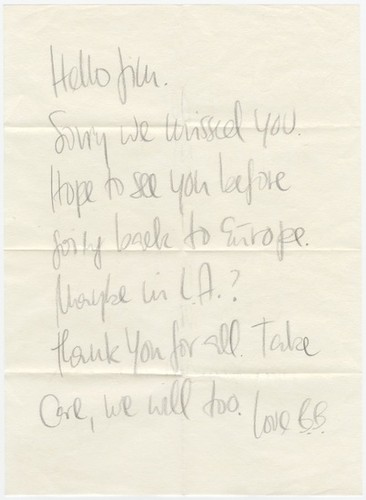 Hello Jim.
Sorry we missed you.
Hope to see you before
going back to Europe.
Maybe in L.A.?
Thank you for all. Take
Care, we will too. Love B.B.